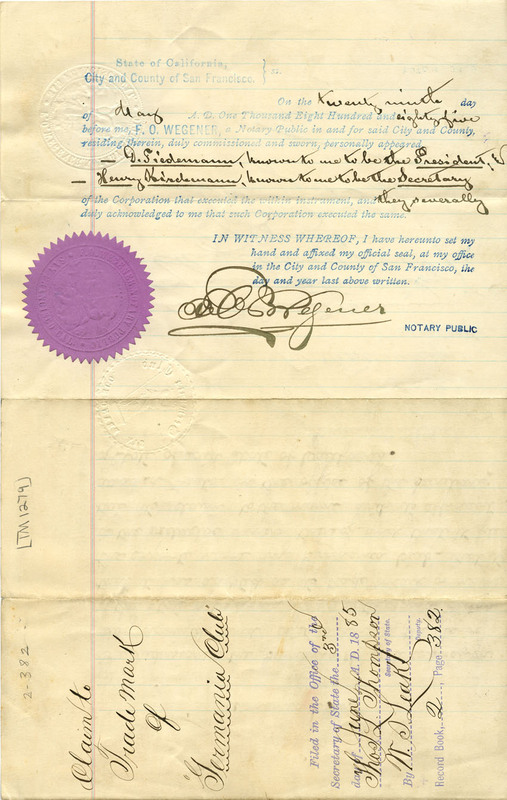 State of California,
City and County of San Francisco. } ss.
On the twenty ninth day
of May A. D. One Thousand Eight Hundred and eighty five
before me, F. O. WEGENER, a Notary Public in and for said City and County,
residing therein, duly commissioned and sworn, personally appeared
— D. Tiedemann, known to me to be the President, &
— Henry Hirdemann, known to me to be the Secretary
of the Corporation that executed the within instrument, and they severally
duly acknowledged to me that such Corporation executed the same.
IN WITNESS WHEREOF, I have hereunto set my
hand and affixed my official seal, at my office
in the City and County of San Francisco, the
day and year last above written.
F O Wegener
NOTARY PUBLIC
[TM1279]
2-382
Claim to
Trade Mark
of
"Germania Club"
Filed in the Office of the
Secretary of State the 3rd
day of June A. D. 1885
Thos L Thompson
Secretary of State.
By W. S. Leake
Deputy.
Record Book 2, Page 382